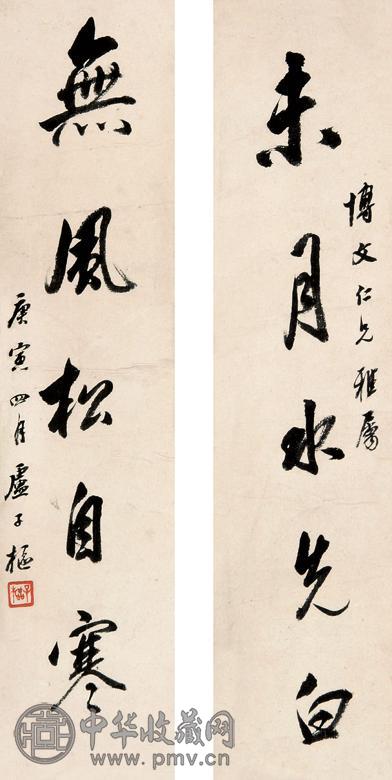 未月水先白
博文仁兄雅属
無風松自寒
庚寅四月盧子樞
中华收藏网
www.pmv.cn